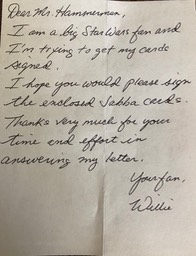 Dear Mr. Hammerman,
I am a big Star Wars fan and
I'm trying to get my cards
signed.
I hope you would please sign
the enclosed Jabba cards.
Thanks very much for your
time and effort in
answering my letter.
Your fan,
Willie